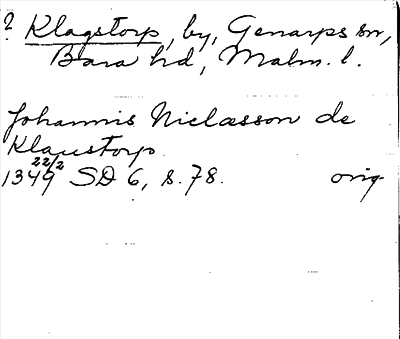 ? Klagstorp, by, Genarps sn,
Bara hd, Malm. l.
Johannis Niclæsson de
Klaustorp
1349 22/2 SD 6, s. 78. orig